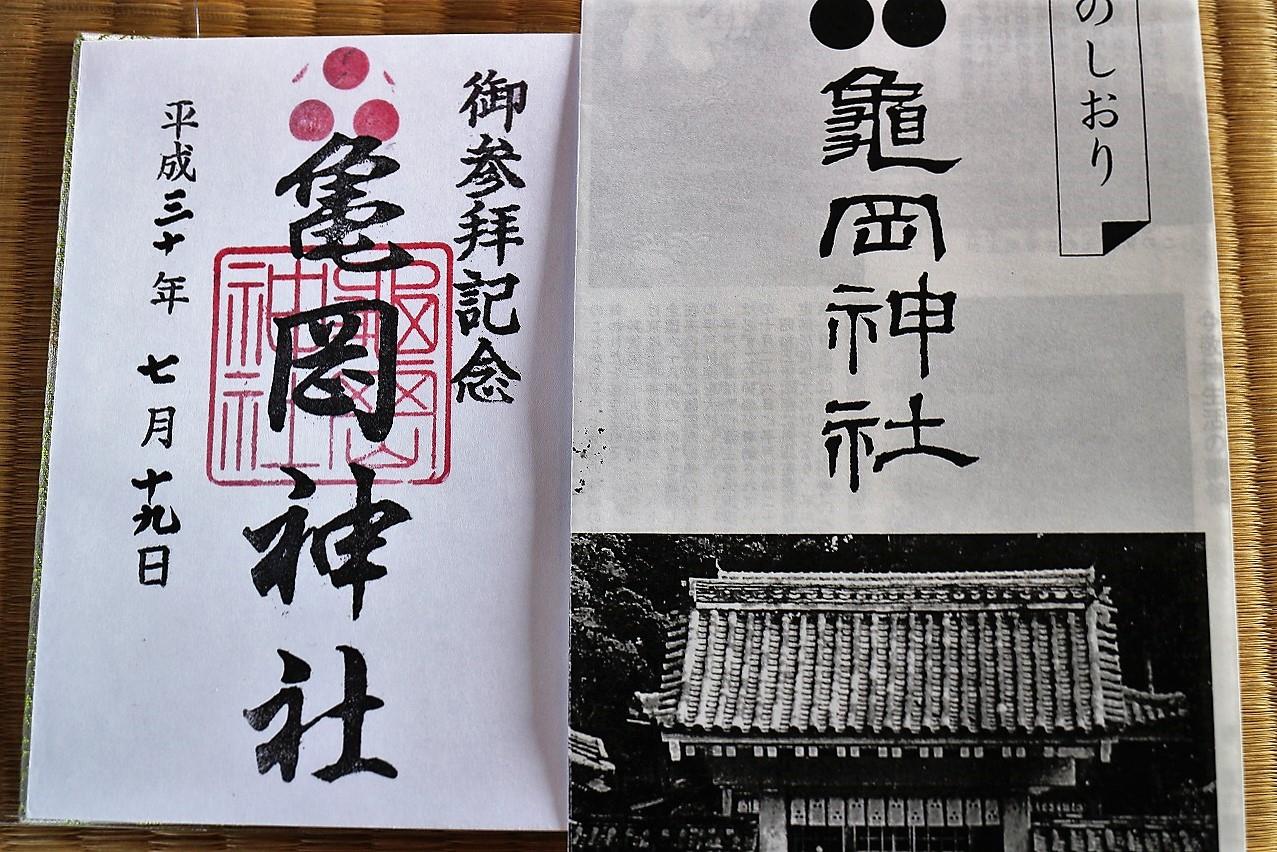 御参拝記念
亀岡神社
平成三十年 七月十九日
龜岡神社
のしおり
龜岡神社